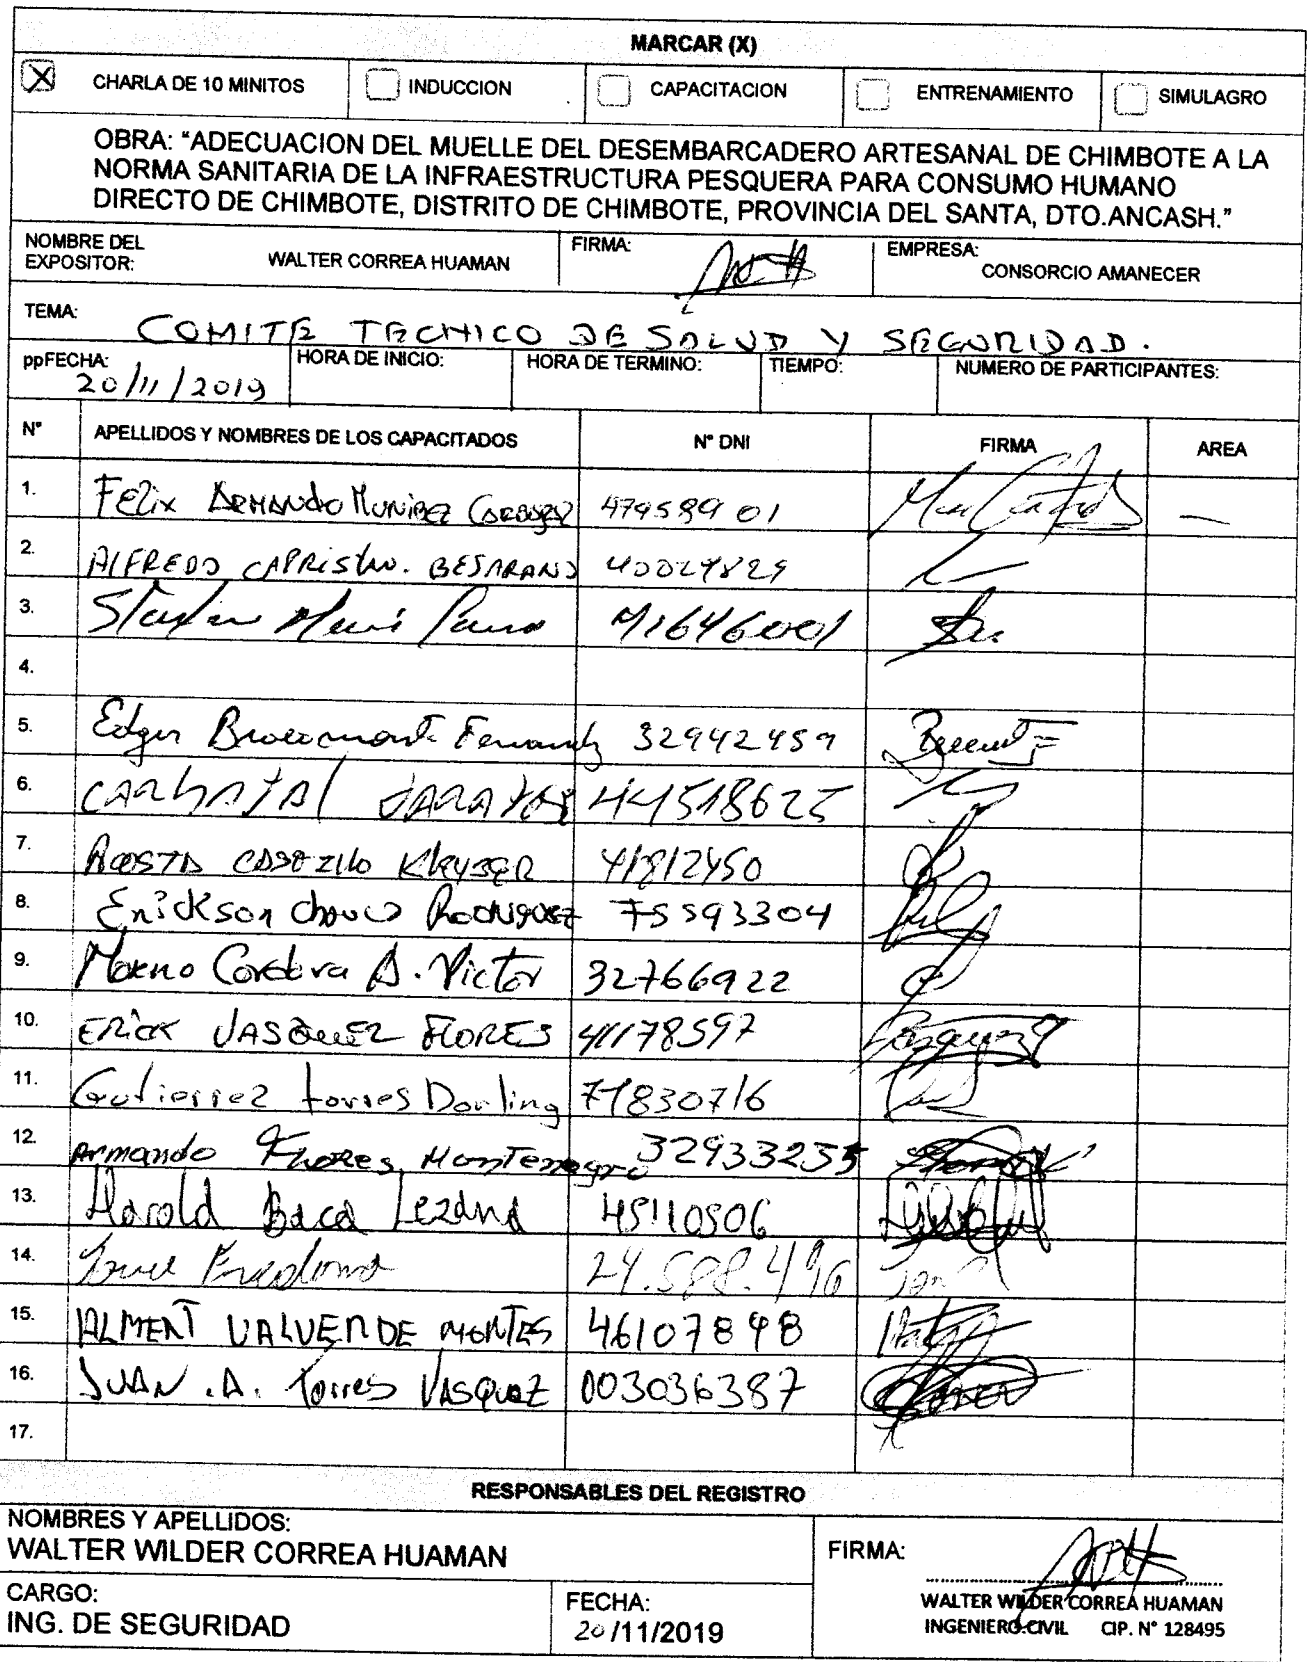 MARCAR (X)
X CHARLA DE 10 MINITOS INDUCCION CAPACITACION ENTRENAMIENTO SIMULAGRO
OBRA: "ADECUACION DEL MUELLE DEL DESEMBARCADERO ARTESANAL DE CHIMBOTE A LA
NORMA SANITARIA DE LA INFRAESTRUCTURA PESQUERA PARA CONSUMO HUMANO
DIRECTO DE CHIMBOTE, DISTRITO DE CHIMBOTE, PROVINCIA DEL SANTA, DTO.ANCASH."
NOMBRE DEL EXPOSITOR: WALTER CORREA HUAMAN FIRMA: EMPRESA: CONSORCIO AMANECER
TEMA: COMITE TECNICO DE SALUD Y SEGURIDAD.
ppFECHA: 20/11/2019 HORA DE INICIO: HORA DE TERMINO: TIEMPO: NUMERO DE PARTICIPANTES:
N° APELLIDOS Y NOMBRES DE LOS CAPACITADOS N° DNI FIRMA AREA
1. Felix ARMANDO 47958901 —
2. AlFREDO CAPRISTAN. BESARANO 40024829
3.
4.
5. Edgar 32942459
6. CARbAJAl 44518625
7. ACOSTA KLEYSER 41812450
8. Erickson RODRIGUEZ 75593304
9. Moreno Cordova A. Victor 32766922
10. ERICK VASQUEZ FLORES 41178597
11. Gutierrez torres Darling 71830716
12. Armando FLORES, Montenegro 32933255
13. Harold Baca Lezana 45110506
14. 24.588.496
15. ALMENT VALVERDE MONTES 46107898
16. JUAN .A. Torres VASQUEZ 003036387
17.
RESPONSABLES DEL REGISTRO
NOMBRES Y APELLIDOS:
WALTER WILDER CORREA HUAMAN FIRMA:
CARGO: FECHA: WALTER WILDER CORREA HUAMAN
ING. DE SEGURIDAD 20/11/2019 INGENIERO CIVIL CIP. N° 128495